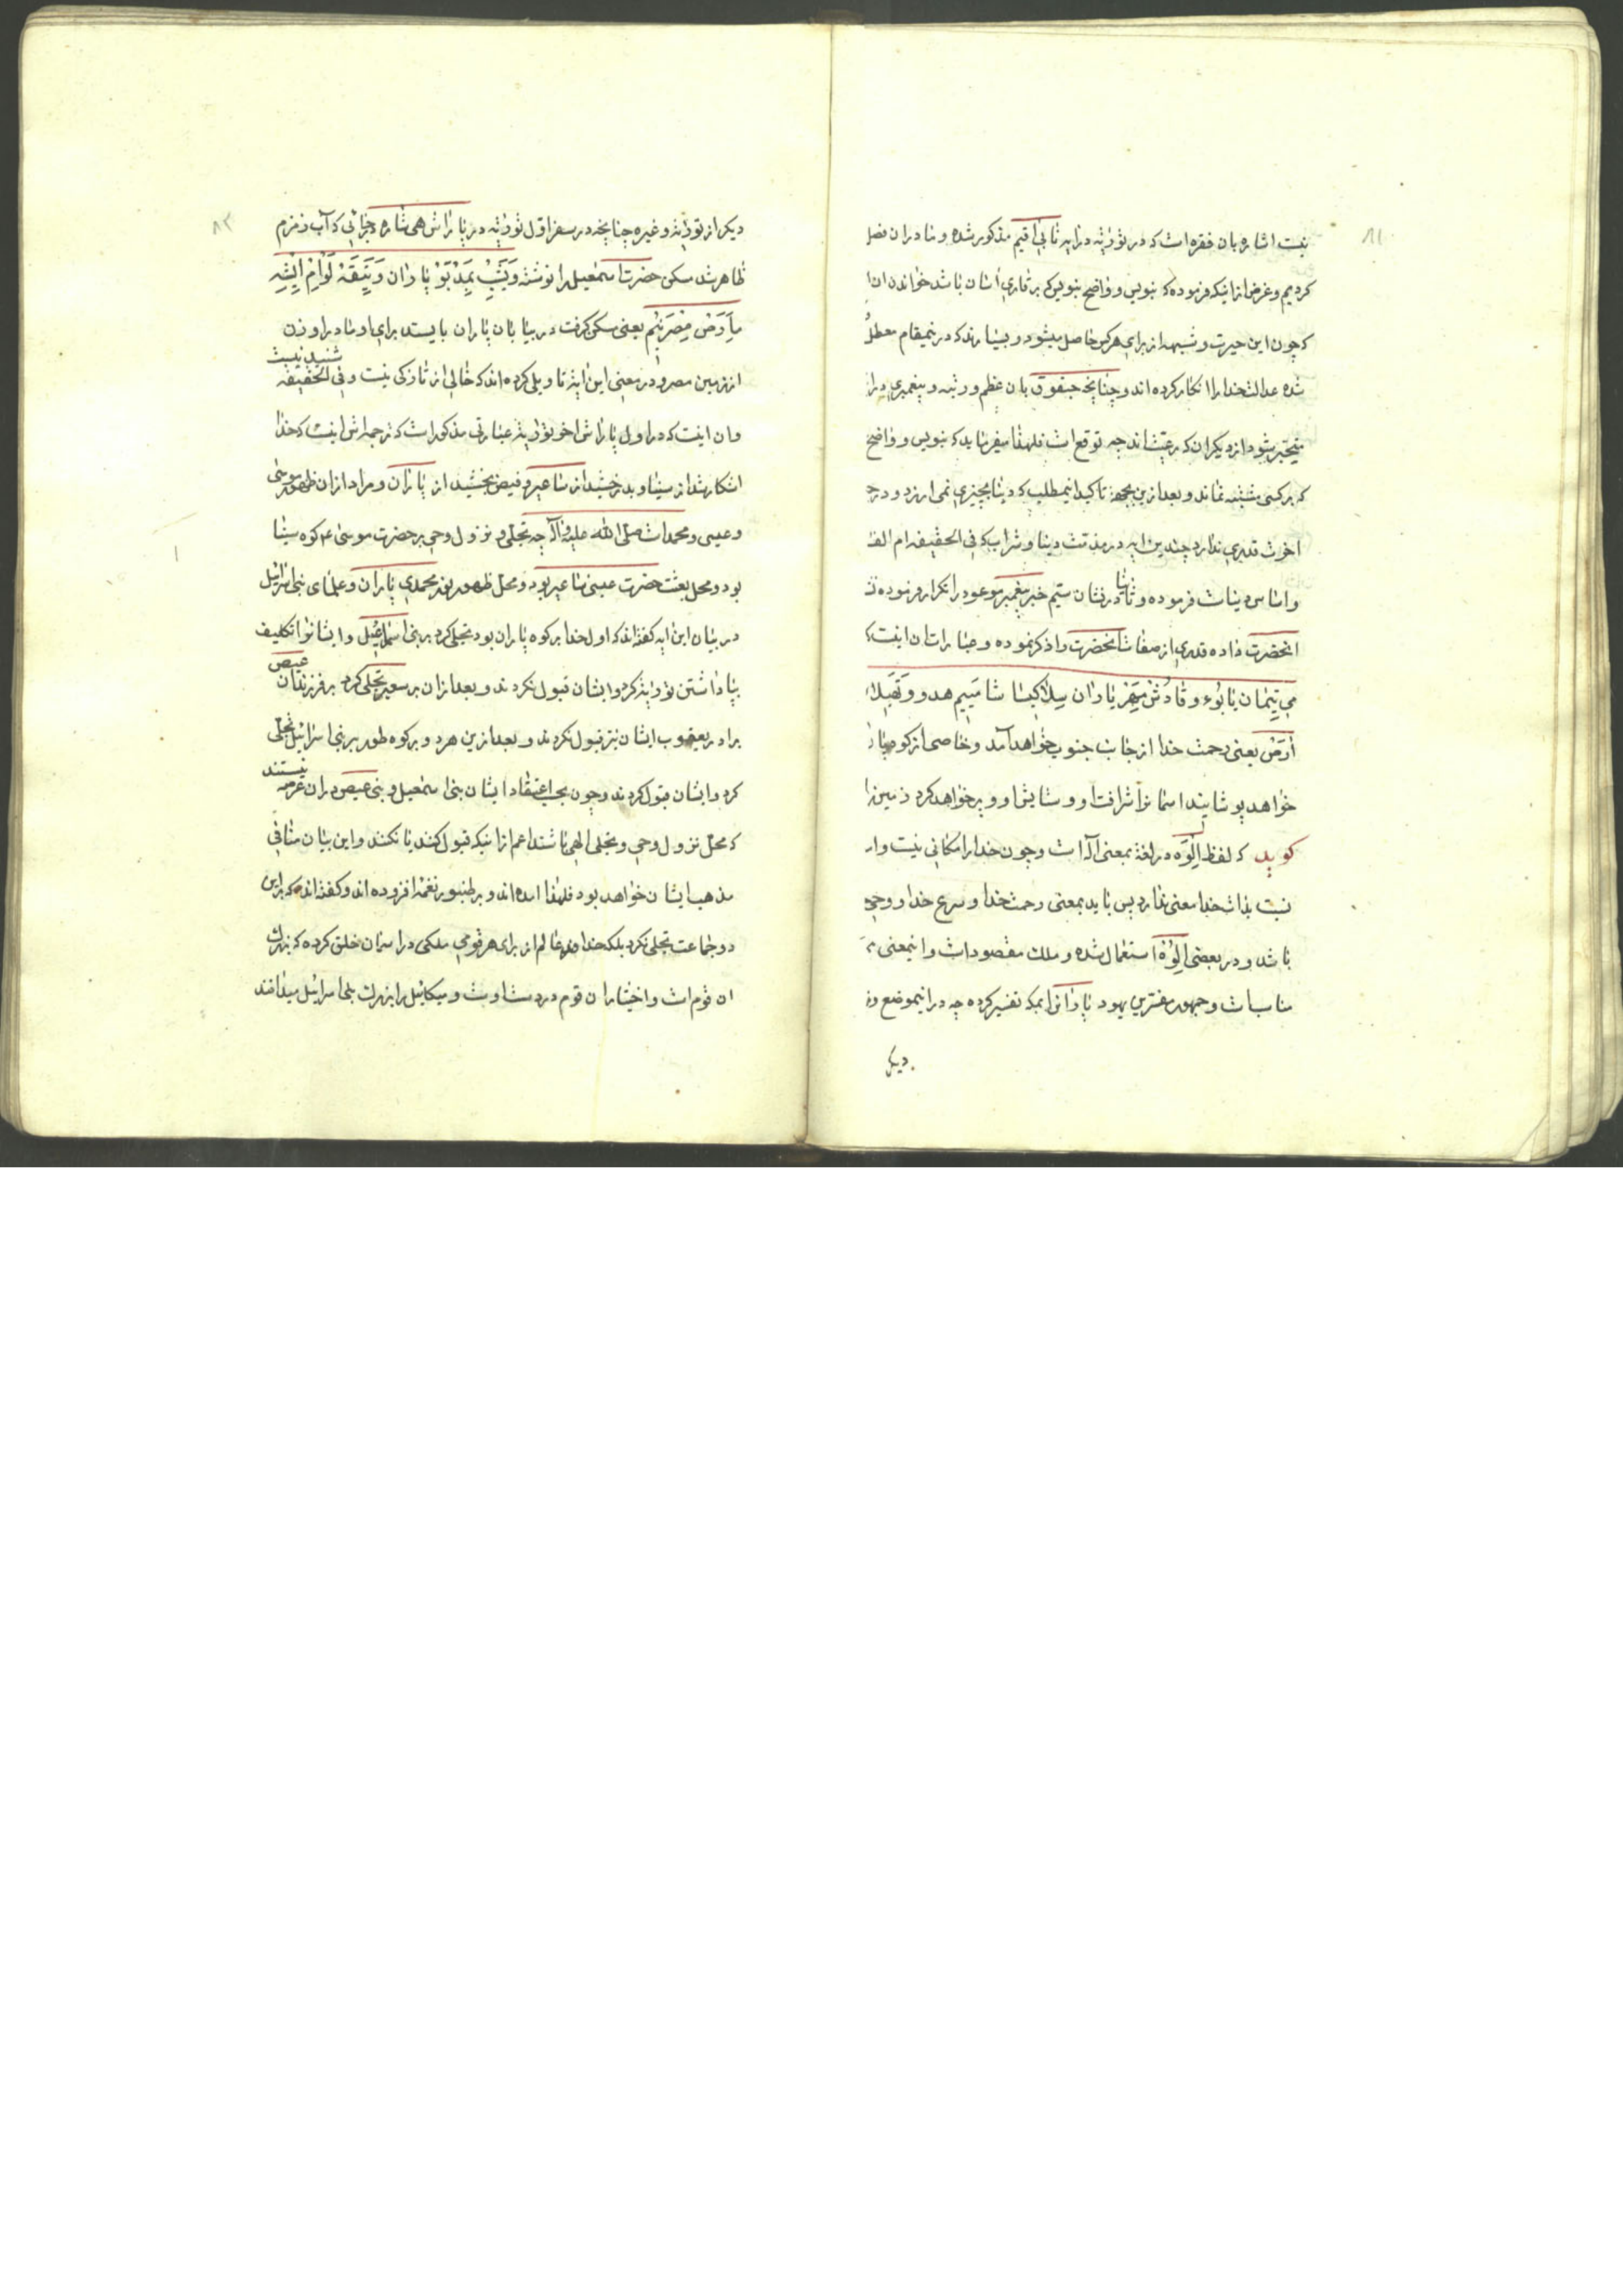 ۸۱
نیست اشاره بان فقره است که در توریة در ایه نابی اقیم مذکور شده و ما در ان فصل
کردیم و غرض از اینکه فرموده که بنویس و واضح بنویس که بر قاری آسان باشد خواندن ان
که چون این حیرت و شبهه از برای هر کس حاصل میشود و بسیارند که در ینمقام معطل
شده عدالت خدا را انکار کرده اند و چنانچه حبقوق بان عظم و رتبه و پیغمبری در
متحیر شود از دیگران که رعیتند چه توقع است فلهذا میفرماید که بنویس و واضح
که بر کسی مشتبه نماند و بعد از ین بجهة تاکید اینمطلب که دنیا بچیزی نمی ارزد و در
اخرت قدری ندارد چندین ایه در مذمت دنیا و شراب که فی الحقیقه ام
واساس دنیاست فرموده و ثانیا در نشان ستیم خبر پیغمبر موعود را تکرار فرموده
انحضرت داده قدری از صفات انحضرت را ذکر نموده و عبارات ان اینست که
می تیمان یابوء وقادوش میهر پاران سلا کیسا شامییم هدو وتهیلا
آرض یعنی رحمت خدا از جانب جنوب خواهد آمد و خاصی از کوه
خواهد پوشانید اسمانرا شرافت او و ستایش او و پر خواهد کرد زمین
کوید که لفظ الوه در لغة بمعنی اله است و چون خدا را مکانی نیست و
نسبت بذات خدا معنی ندارد پس باید بمعنی رحمت خدا و شرع خدا و وحی
باشد و در بعضی الوه استعمال شده و ملک مقصود است و اینمعنی
مناسبات و جمهور مفسرین یهود پارانرا بمکه تفسیر کرده چه در اینموضع و
دیکر
۸۲
دیکر از توریة و غیره چنانچه در سفر اول توریة در پاراش همی شاره جائی که آب زمزم
ظاهر شد سکن حضرت اسمعیل را نوشته ویشب بمدبر پاران وتیقه لو امو ایشه
مارض مصریم یعنی سکن کرفت در بیابان پاران بایستد برای او مادر او زن
از زمین مصر و در معنی این ایه تاویلی کرده اند که خالی از تازکی نیست و فی الحقیقه شنیدنیست
وان اینست که در اول پاراش اخر توریة عبارتی مذکور است که ترجمه اش اینست که خدا
اشکار شد از سینا و بدرخشید از ساعیر و فیض بخشید از پاران و مراد از ان ظهور موسی
و عیسی و محمد است صلی الله علیه و آله چه تجلی و نزول وحی بر حضرت موسی ع کوه سینا
بود و محل بعثت حضرت عیسی ساعیر بود و محل ظهور نور محمدی پاران و علمای بنی اسرائیل
در بیان این ایه کفته اند که اول خدا بر کوه پاران بود تجلی کرد بر بنی اسماعیل و ایشانرا تکلیف
بپا داشتن توریة کرد و ایشان قبول نکردند و بعد از ان بر سعیر تجلی کرد بر فرزندان عیص
برادر یعقوب ایشان نیز قبول نکردند و بعد از ین هر دو بر کوه طور بر بنی اسرائیل تجلی
کرد و ایشان قبول کردند و چون بحسب اعتقاد ایشان بنی اسمعیل و بنی عیص در ان مرتبه نیستند
که محل نزول وحی و تجلی الهی باشند اعم از اینکه قبول کنند یا نکنند و این بیان منافی
مذهب ایشان خواهد بود فلهذا امده اند و بر طنبور نغمه افزوده اند و کفته اند که بر این
دو جماعت تجلی نکرد بلکه خداوند عالم از برای هر قومی ملکی در اسمان خلق کرده که بزرک
ان قوم است و اختیار ان قوم در دست اوست و میکائیل را بزرک بنی اسرائیل میدانند